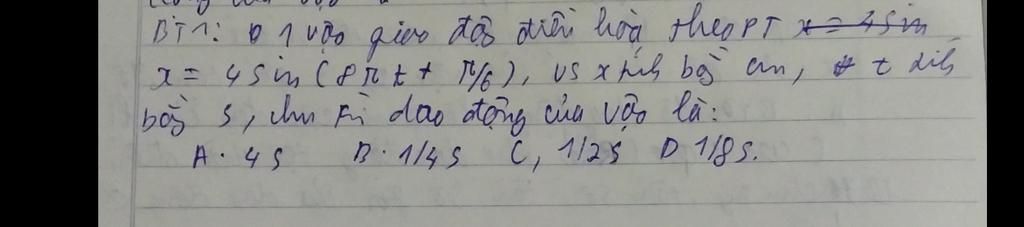 BT1: 1 vật giao động điều hòa theo PT x = 4 sin
x = 4 sin (8πt + π/6), vs x tính bằng cm, t tính
bằng s, chu kì dao động của vật là:
A. 4s B. 1/4s C, 1/2s D 1/8s.